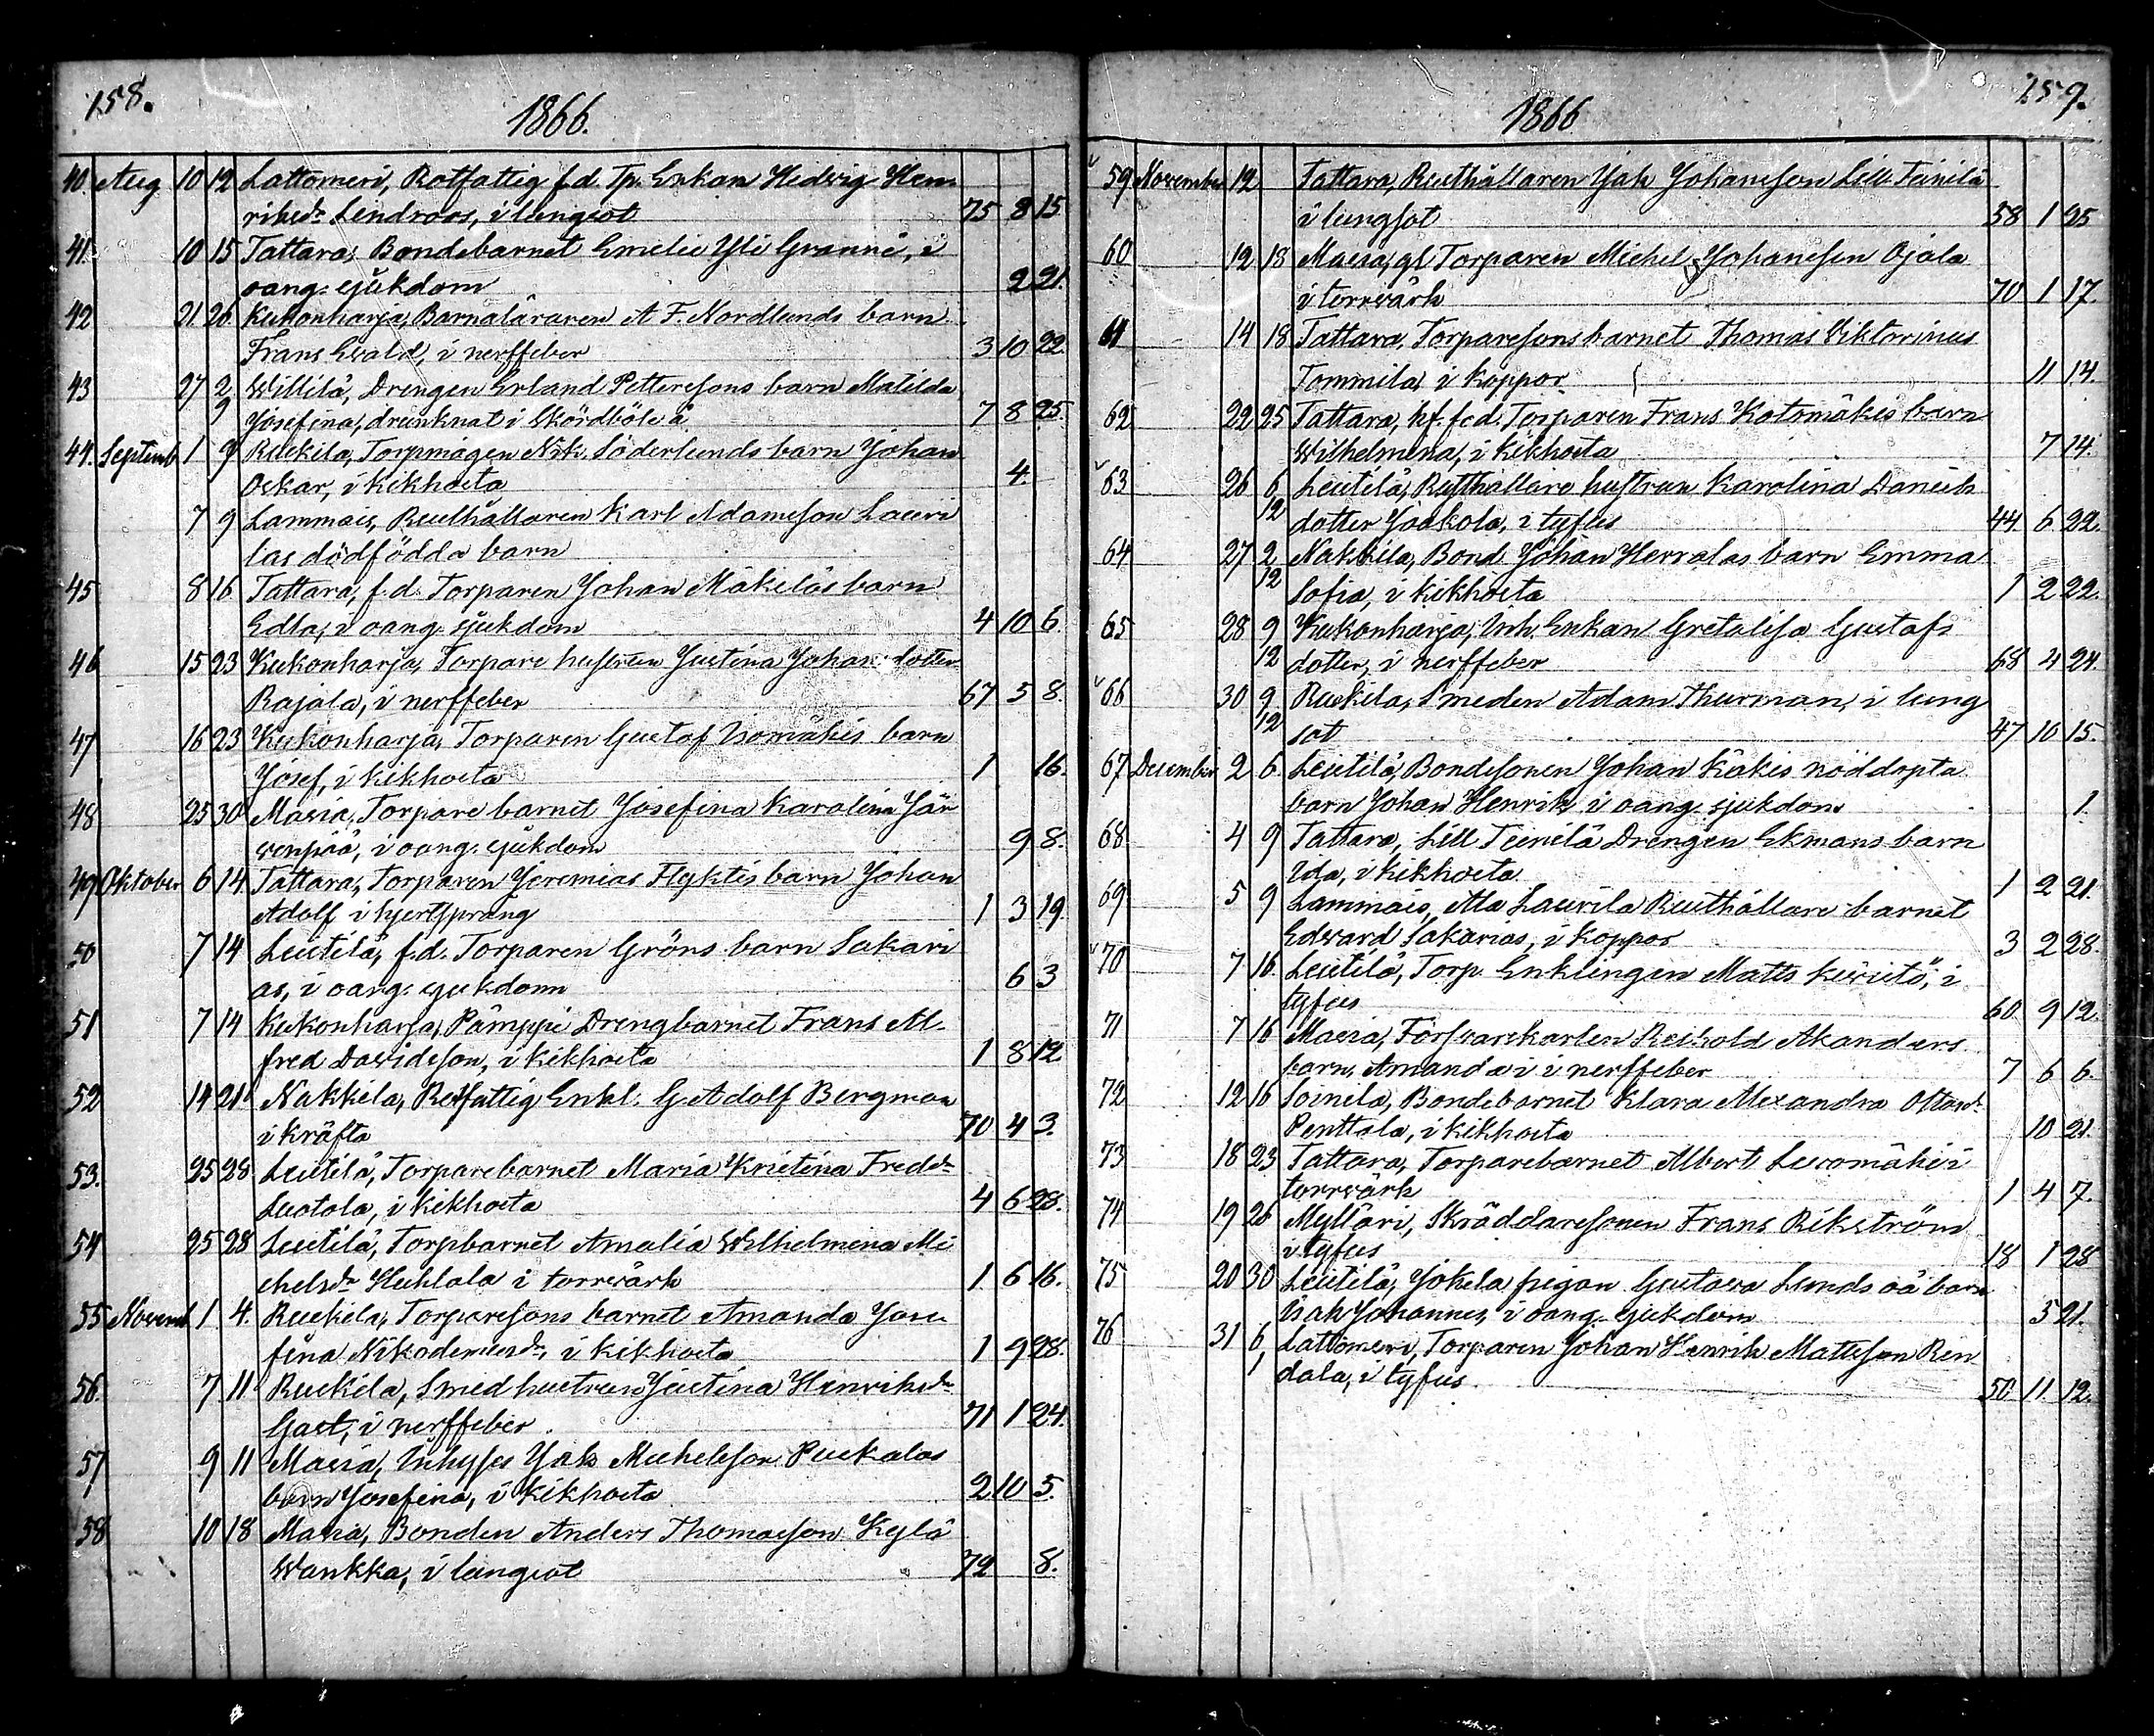 158.
1866.
40. Aug 10 12 Lattomeri, Rotfattig f.d. Tp. Enkan Hedvig Hen
riksdr Lindroos, i lungsot 75 8 15
41. 10 15 Tattara, Bondebarnet Emelie Yli Granni, i
oang. sjukdom 2 21.
42 21 26 Kukonharja, Barnaläraren A F. Nordlunds barn
Frans Evald, i nerffeber 3 10 22
43 27 2/9 Willilä, Drengen Erland Pettersons barn Matilda
Josefina, drunknat i Skördböle å 7 8 25.
44. Septemb 1 9 Ruskila, Torpmågen Nik. Söderlunds barn Johan
Oskar, i kikhosta 4.
7 9 Lammais, Rusthållaren Karl Adamsson Lauri
las dödfödda barn
45 8 16 Tattara, f.d. Torparen Johan Mäkeläs barn
Edla, i oang. sjukdom 4 10 6.
46 15 23 Kukonharja, Torpare hustrun Justina Johansdotter
Rajala, i nerffeber 67 5 8.
47 16 23 Kukonharja, Torparen Gustaf Isomäkis barn
Josef, i kikhosta 1 16.
48 25 30 Masia, Torpare barnet Josefina Karolina Jär
venpää, i oang. sjukdom 9 8.
49 Oktober 6 14 Tattara, Torparen Jeremias Flyktis barn Johan
Adolf i hjertsprång 1 3 19
50 7 14 Leistilä, f.d. Torparen Gröns barn Sakari
as, i oang. sjukdom 6 3
51 7 14 Kukonharja, Pämppi Drengbarnet Frans Al
fred Davidsson, i kikhosta 1 8 12
52 14 21 Nakkila, Rotfattig Enkl. G Adolf Bergman
i kräfta 70 4 3.
53. 25 28 Leistilä, Torparebarnet Maria Kristina Fredr
Luotola, i kikhosta 4 6 28.
54 25 28 Leistilä, Torpbarnet Amalia Wilhelmina Mi
chelsdr Huhtala i torrvärk 1. 6 16.
55 Novemb 1 4. Ruskila, Torparesons barnet Amanda Jose
fina Nikodemusdr, i kikhosta 1 9 28.
56. 7 11 Ruskila, Smed hustrun Justina Henriksdr
Gast, i nerffeber. 71 1 24.
57 9 11 Masia, Inhyses Isak Michelsson Puskalas
barn Josefina, i kikhosta 2 10 5.
58 10 18 Masia, Bonden Anders Thomasson Kylä
Wankka, i lungsot 72 8.
259.
1866
59 November 12 Tattara, Rusthållaren Isak Johansson Lill Teinilä
i lungsot 58 1 25
60 12 18 Masia, gl Torparen Michel Johansson Ojala
i torrvärk 70 1 17.
61 14 18 Tattara, Torparesons barnet Thomas Viktorinus
Tommila, i koppor 11 14.
62 22 25 Tattara, hf. f.d. Torparen Frans Katomäkis barn
Wilhelmina, i kikhosta 7 14.
63 26 6/12 Leistilä, Rusthållare hustrun Karolina Daniels
dotter Jaakola, i tyfus 44 6 22.
64 27 2/12 Nakkila, Bond Johan Herralas barn Emma
Sofia, i kikhosta 1 2 22.
65 28 9/12 Kukonharja, Inh. Enkan Gretalisa Gustafs
dotter, i nerffeber 68 4 24.
66 30 9/12 Ruskila, Smeden Adam Thurman, i lung
sot 47 10 15.
67 December 2 6. Leistilä, Bondesonen Johan Käkis nöddopta
barn Johan Henrik, i oang. sjukdom 1.
68 4 9 Tattara, Lill Teinilä Drengen Ekmans barn
Ida, i kikhosta 1 2 21.
69 5 9 Lammais, Ala Laurila Rusthållare barnet
Edvard Sakarias, i koppor 3 2 28.
70 7 16 Leistilä, Torp. Enklingen Matts , i
tyfus 60 9 12.
71 7 16 Masia, Försvarskarlen Reihold Akanders
barn, Amanda i i nerffeber 7 6 6.
72 12 16 Soinila, Bondebarnet Klara Alexandra Ottosdr
Penttala, i kikhosta 10 21.
73 18 23 Tattara, Torparebarnet Albert i
torrvärk 1 4 7.
74 19 26 Mylläri, Skräddaresonen Frans Rikström
i tyfus 18 1 28
75 20 30 Leistilä, Jokela pigan Gustava Lunds oä barn
Isak Johannes, i oang. sjukdom 3 21.
76 31 6/1 Lattomeri, Torparen Johan Henrik Mattsson Ren
dala, i tyfus. 50 11. 12.